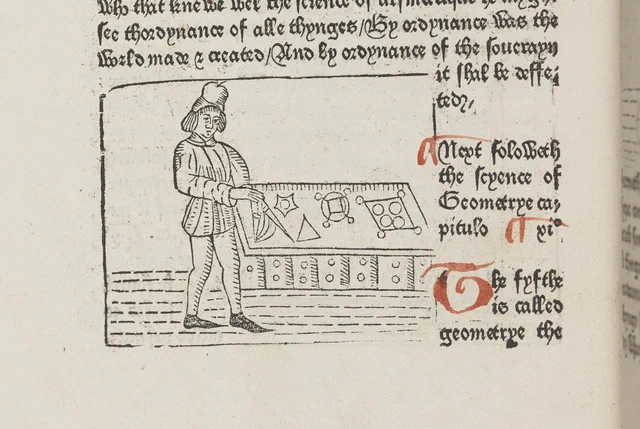 who that knewe wel the science of arsmetrique he myght
see thordynance of alle thynges/By ordynance was the
world made & created/And by ordynance of the souerayn
it shal be deffe/
ted/,
Next foloweth
the scyence of
Geometrye ca/
pitulo xi°
The fyfthe
is called
geometrye the